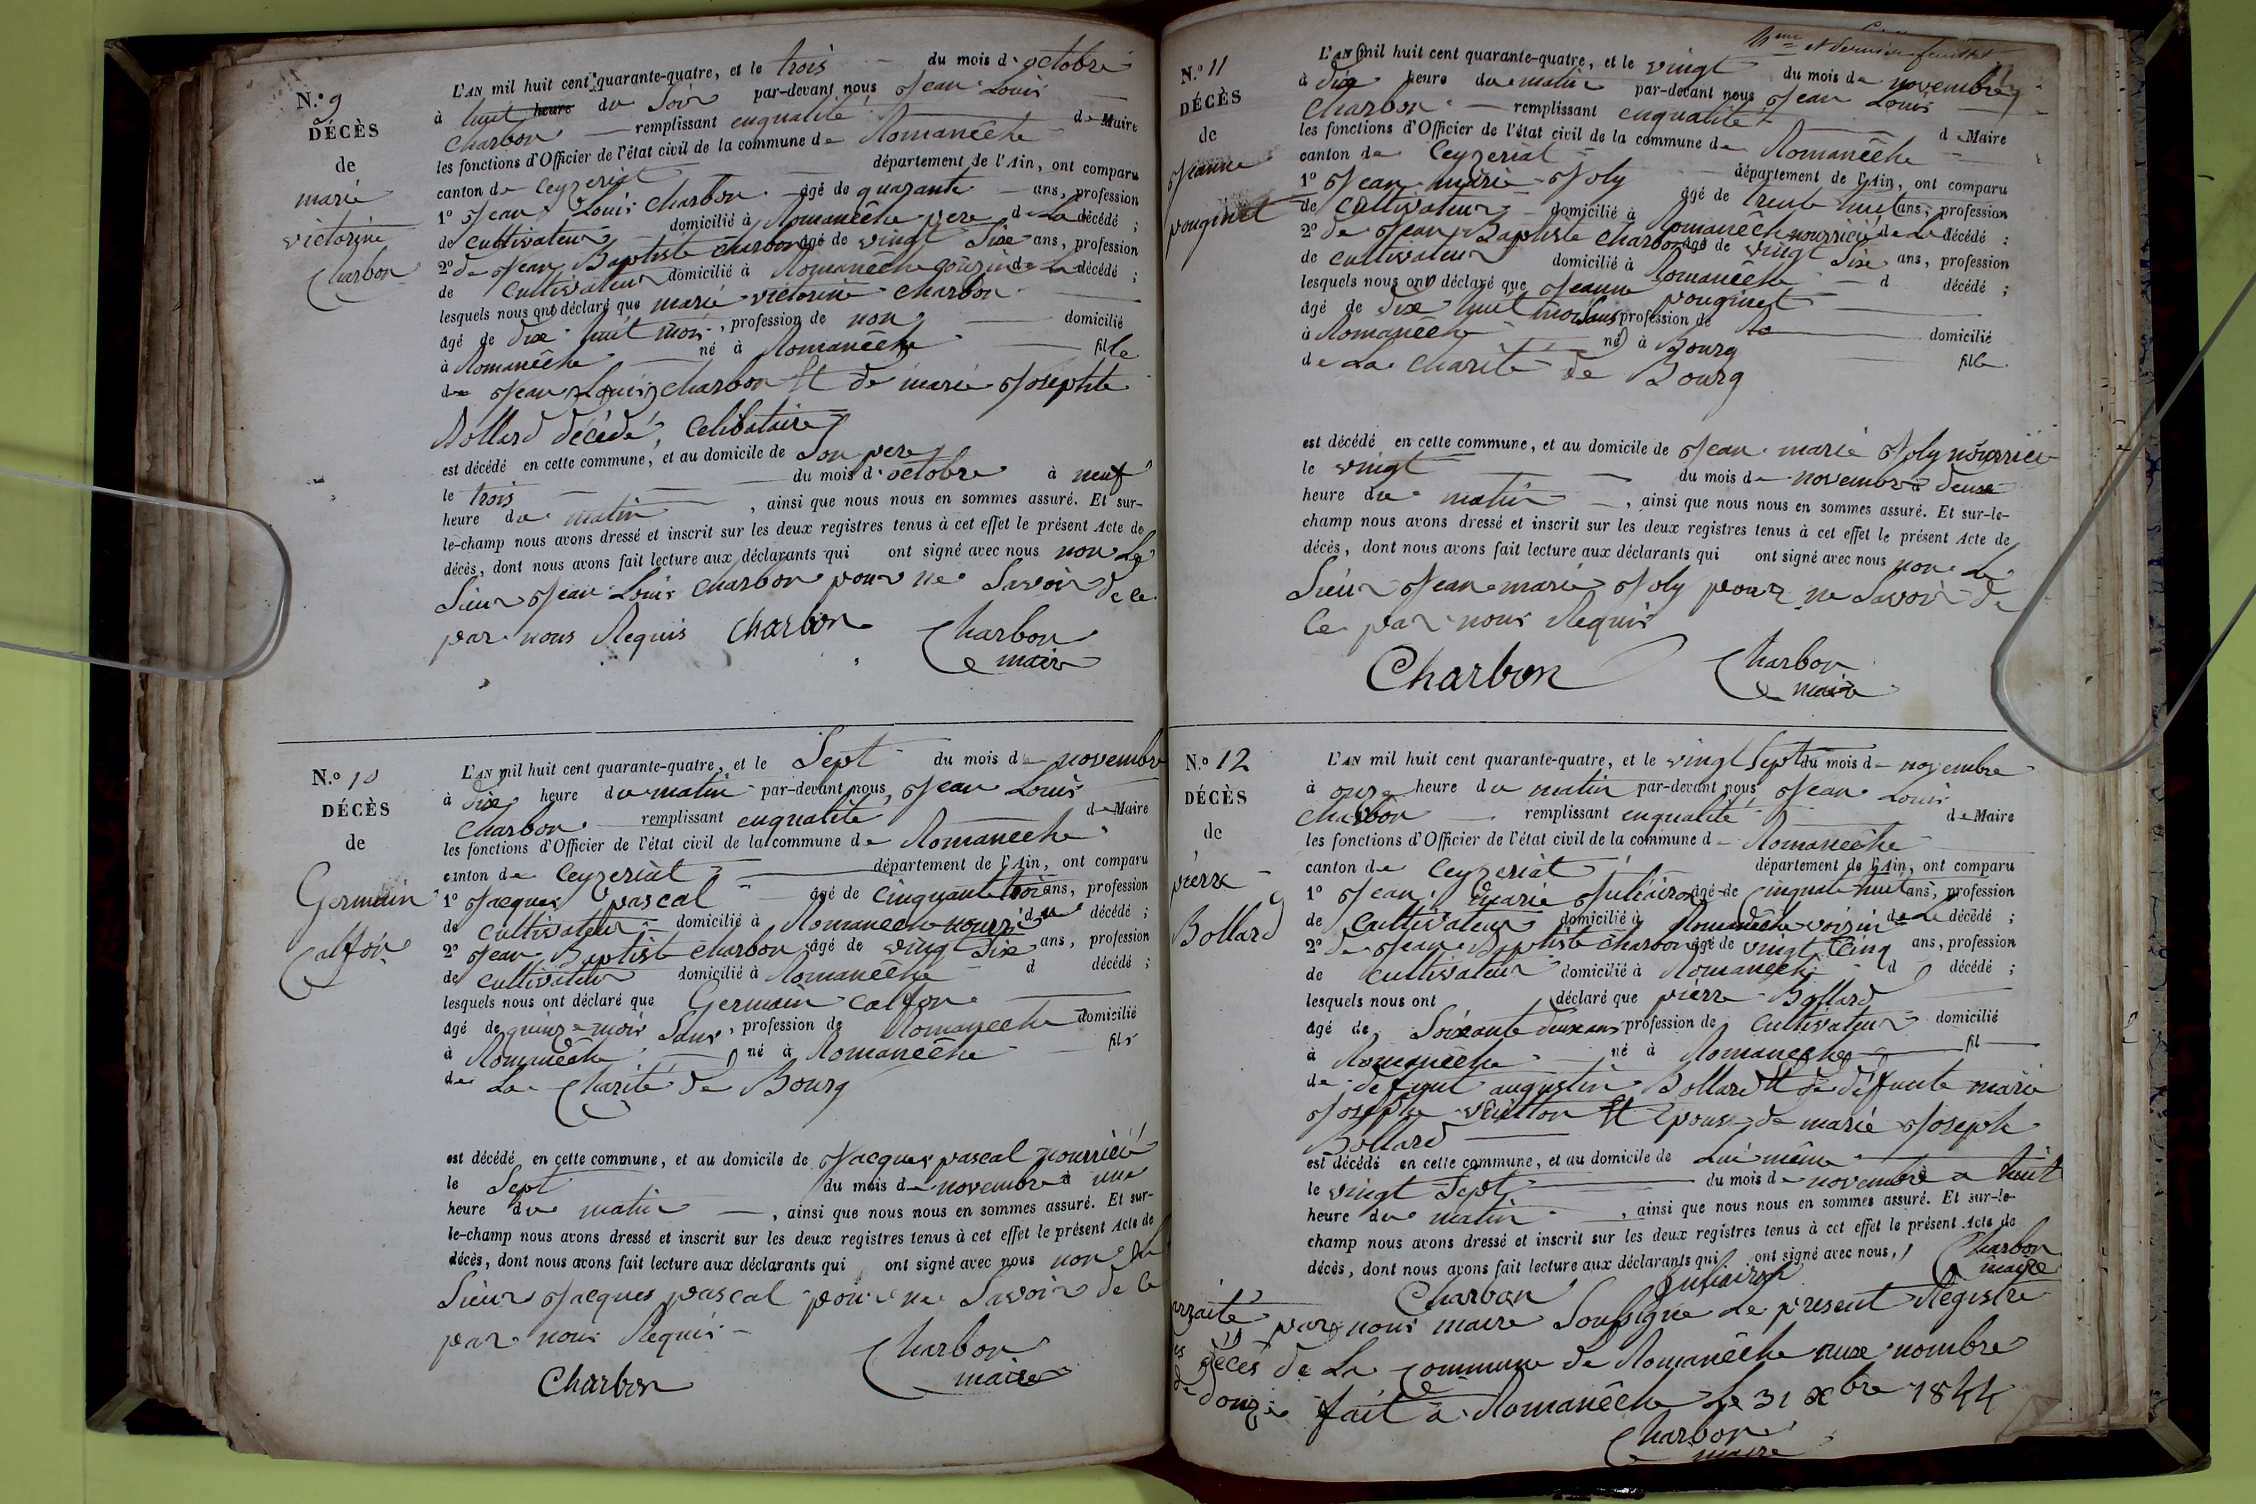 N.o 9
DÉCÈS
de
marie
victorine
Charbon
L'AN mil huit cent quarante-quatre, et le trois du mois d'octobre
à huit heure du Soir par-devant nous Jean Louis
Charbon remplissant enqualité de Maire
les fonctions d'Officier de l'état civil de la commune de Romanêche
canton de Ceyzeriat département de l'Ain, ont comparu
1o Jean Louis Charbon âgé de quarante ans, profession
de cultivateur domicilié à Romanêche pere de La décédé ;
2o de Jean Baptiste Charbon âgé de vingt Six ans, profession
de Cultivateur domicilié à Romanêche couzin de La décédé ;
lesquels nous ont déclaré que marie victorine charbon
âgé de dix huit mois, profession de non domicilié
à Romanêche né à Romanêche fille
de Jean Louis Charbon Et de marie Josephte
Bollard décédé, Celibataire
est décédé en cette commune, et au domicile de Son pere
le trois du mois d'octobre à neuf
heure du matin, ainsi que nous nous en sommes assuré. Et sur-
le-champ nous avons dressé et inscrit sur les deux registres tenus à cet effet le présent Acte de
décès, dont nous avons fait lecture aux déclarants qui ont signé avec nous non Le
Sieur Jean Louis Charbon pour ne Savoir de ce
par nous Requis Charbon Charbon
maire
N.o 10
DÉCÈS
de
Germain
Calfon
L'AN mil huit cent quarante-quatre, et le Sept du mois de novembre
à dix heure du matin par-devant nous, Jean Louis
Charbon remplissant enqualité de Maire
les fonctions d'Officier de l'état civil de la commune de Romanêche
canton de Ceyzeriat département de l'Ain, ont comparu
1o Jacques pascal âgé de cinquante trois ans, profession
de cultivateur domicilié à Romanêche du décédé ;
2o Jean Baptiste Charbon âgé de vingt Six ans, profession
de cultivateur domicilié à Romanêche d décédé ;
lesquels nous ont déclaré que Germain Calfon
âgé de quinze mois Sans, profession de Romanêche domicilié
à Romanêche né à Romanêche fils
de La Charité de Bourg
est décédé en cette commune, et au domicile de Jacques pascal nourricié
le Sept du mois de novembre à une
heure du matin, ainsi que nous nous en sommes assuré. Et sur-
le-champ nous avons dressé et inscrit sur les deux registres tenus à cet effet le présent Acte de
décès, dont nous avons fait lecture aux déclarants qui ont signé avec nous non Le
Sieur Jacques pascal pour ne Savoir de Ce
par nous Requis
Charbon
maire
Charbon
et dernier feuillet
N.o 11
DÉCÈS
de
Jeanne
pouginet
L'AN mil huit cent quarante-quatre, et le vingt du mois de novembre
à dix heure du matin par-devant nous Jean Louis
Charbon remplissant enqualité de Maire
les fonctions d'Officier de l'état civil de la commune de Romanêche
canton de Ceyzeriat département de l'Ain, ont comparu
1o Jean marie Joly âgé de trente huit ans, profession
de cultivateur domicilié à Romanêche nourricié de La décédé ;
2o de Jean Baptiste Charbon âgé de vingt Six ans, profession
de cultivateur domicilié à Romanêche d décédé ;
lesquels nous ont déclaré que Jeanne pouginet
âgé de dix huit mois Sans profession de domicilié
à Romanêche né à Bourg fille
de La charité de Bourg
est décédé en cette commune, et au domicile de Jean marie Joly nourricié
le vingt du mois de novembre à deux
heure du matin, ainsi que nous nous en sommes assuré. Et sur-le-
champ nous avons dressé et inscrit sur les deux registres tenus à cet effet le présent Acte de
décès, dont nous avons fait lecture aux déclarants qui ont signé avec nous non Le
Sieur Jean marie Joly pour ne Savoir de
Ce par nous Requis
Charbon Charbon
maire
N.o 12
DÉCÈS
de
pierre
Bollard
L'AN mil huit cent quarante-quatre, et le vingt Sept du mois de novembre
à onze heure du matin par-devant nous Jean Louis
Charbon remplissant enqualité de Maire
les fonctions d'Officier de l'état civil de la commune de Romanêche
canton de Ceyzeriat département de l'Ain, ont comparu
1o Jean Marie âgé de Cinquante huit ans, profession
de Cultivateur domicilié à Romanêche voisin de Le décédé ;
2o de Jean Baptiste Charbon âgé de vingt Cinq ans, profession
de cultivateur domicilié à Romanêche d décédé ;
lesquels nous ont déclaré que pierre Bollard
âgé de Soixante deux ans profession de Cultivateur domicilié
à Romanêche né à Romanêche fil
de defunt augustin Bollard Et de défunte marie
Josephe Et Epoux de marie Joseph
Bollard
est décédé en cette commune, et au domicile de Lui même
le vingt Sept du mois de novembre a huit
heure du matin, ainsi que nous nous en sommes assuré. Et sur-le-
champ nous avons dressé et inscrit sur les deux registres tenus à cet effet le présent Acte de
décès, dont nous avons fait lecture aux déclarants qui ont signé avec nous, Charbon
maire
Charbon
par nous maire Soussigné Le present Registre
décès de La Commune de Romanêche aux nombre
de douze fait à Romanêche Le 31 Xbre 1844
Charbon
maire